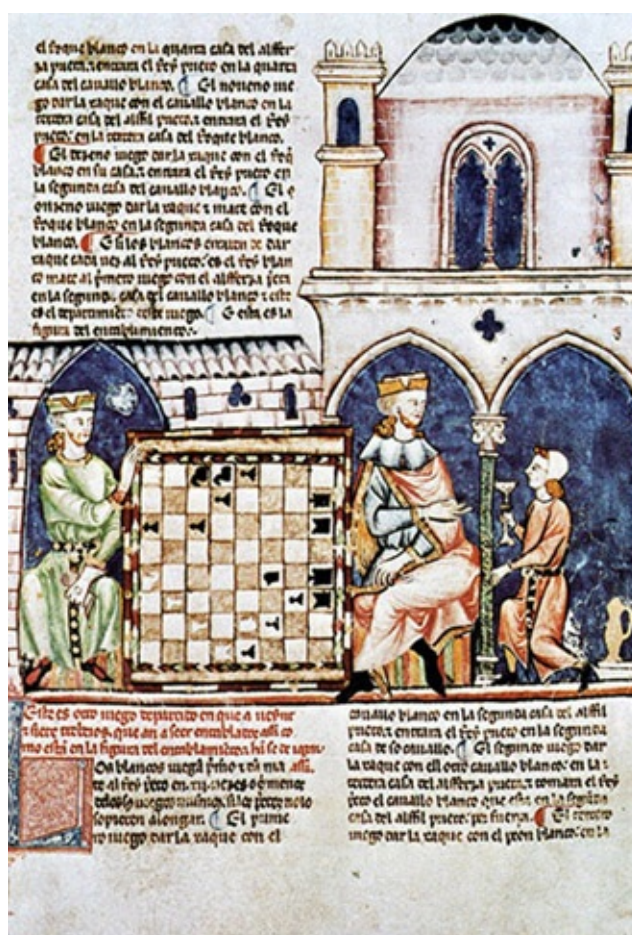 el roque blanco en la quarta casa del alffer
za prieta. & entrara el Rey prieto en la quarta
casa del cauallo blanco. ¶ El noueno iue
go dar la xaque con el cauallo blanco en la
tercera casa del alffil prieto. & entrara el Rey
prieto en la tercera casa del Roque blanco.
¶ El dezeno iuego dar la xaque con el roq
blanco en su casa. & entrara el Rey prieto en
la segunda casa del cauallo blanco. ¶ El o
onzeno iuego dar la xaque & mate con el
Roque blanco en la segunda casa del Roque
blanco. ¶ E si los blancos erraren de dar
xaque cada uez al Rey prieto: es el Rey blan
co mate al primero iuego con el alfferza prieta
en la segunda casa del cauallo blanco & este
es el departimiento deste iuego. ¶ E esta es la
figura del entablamiento.
Este es otro iuego departido en que a ueynte
& siete trebeios, que an a seer entablados assi co
mo estan en la figura del entablamiento & han se de iugar
Los blancos iuegan primero & dan mate
al Rey prieto en iuegos o menos
de los sus iuegos mismos, si los prietos no lo
sopieren alongar. ¶ El prime
ro iuego dar la xaque con el
cauallo blanco en la segunda casa del alffil
prieto. & entrara el Rey prieto en la segunda
casa de so cauallo. ¶ El segundo iuego dar
la xaque con el otro cauallo blanco en la
tercera casa del alfferza prieta. & tomara el Rey
prieto el cauallo blanco que esta en la segunda
casa del alffil prieto: por fuerça. ¶ El tercero
iuego dar la xaque con el peon blanco en la